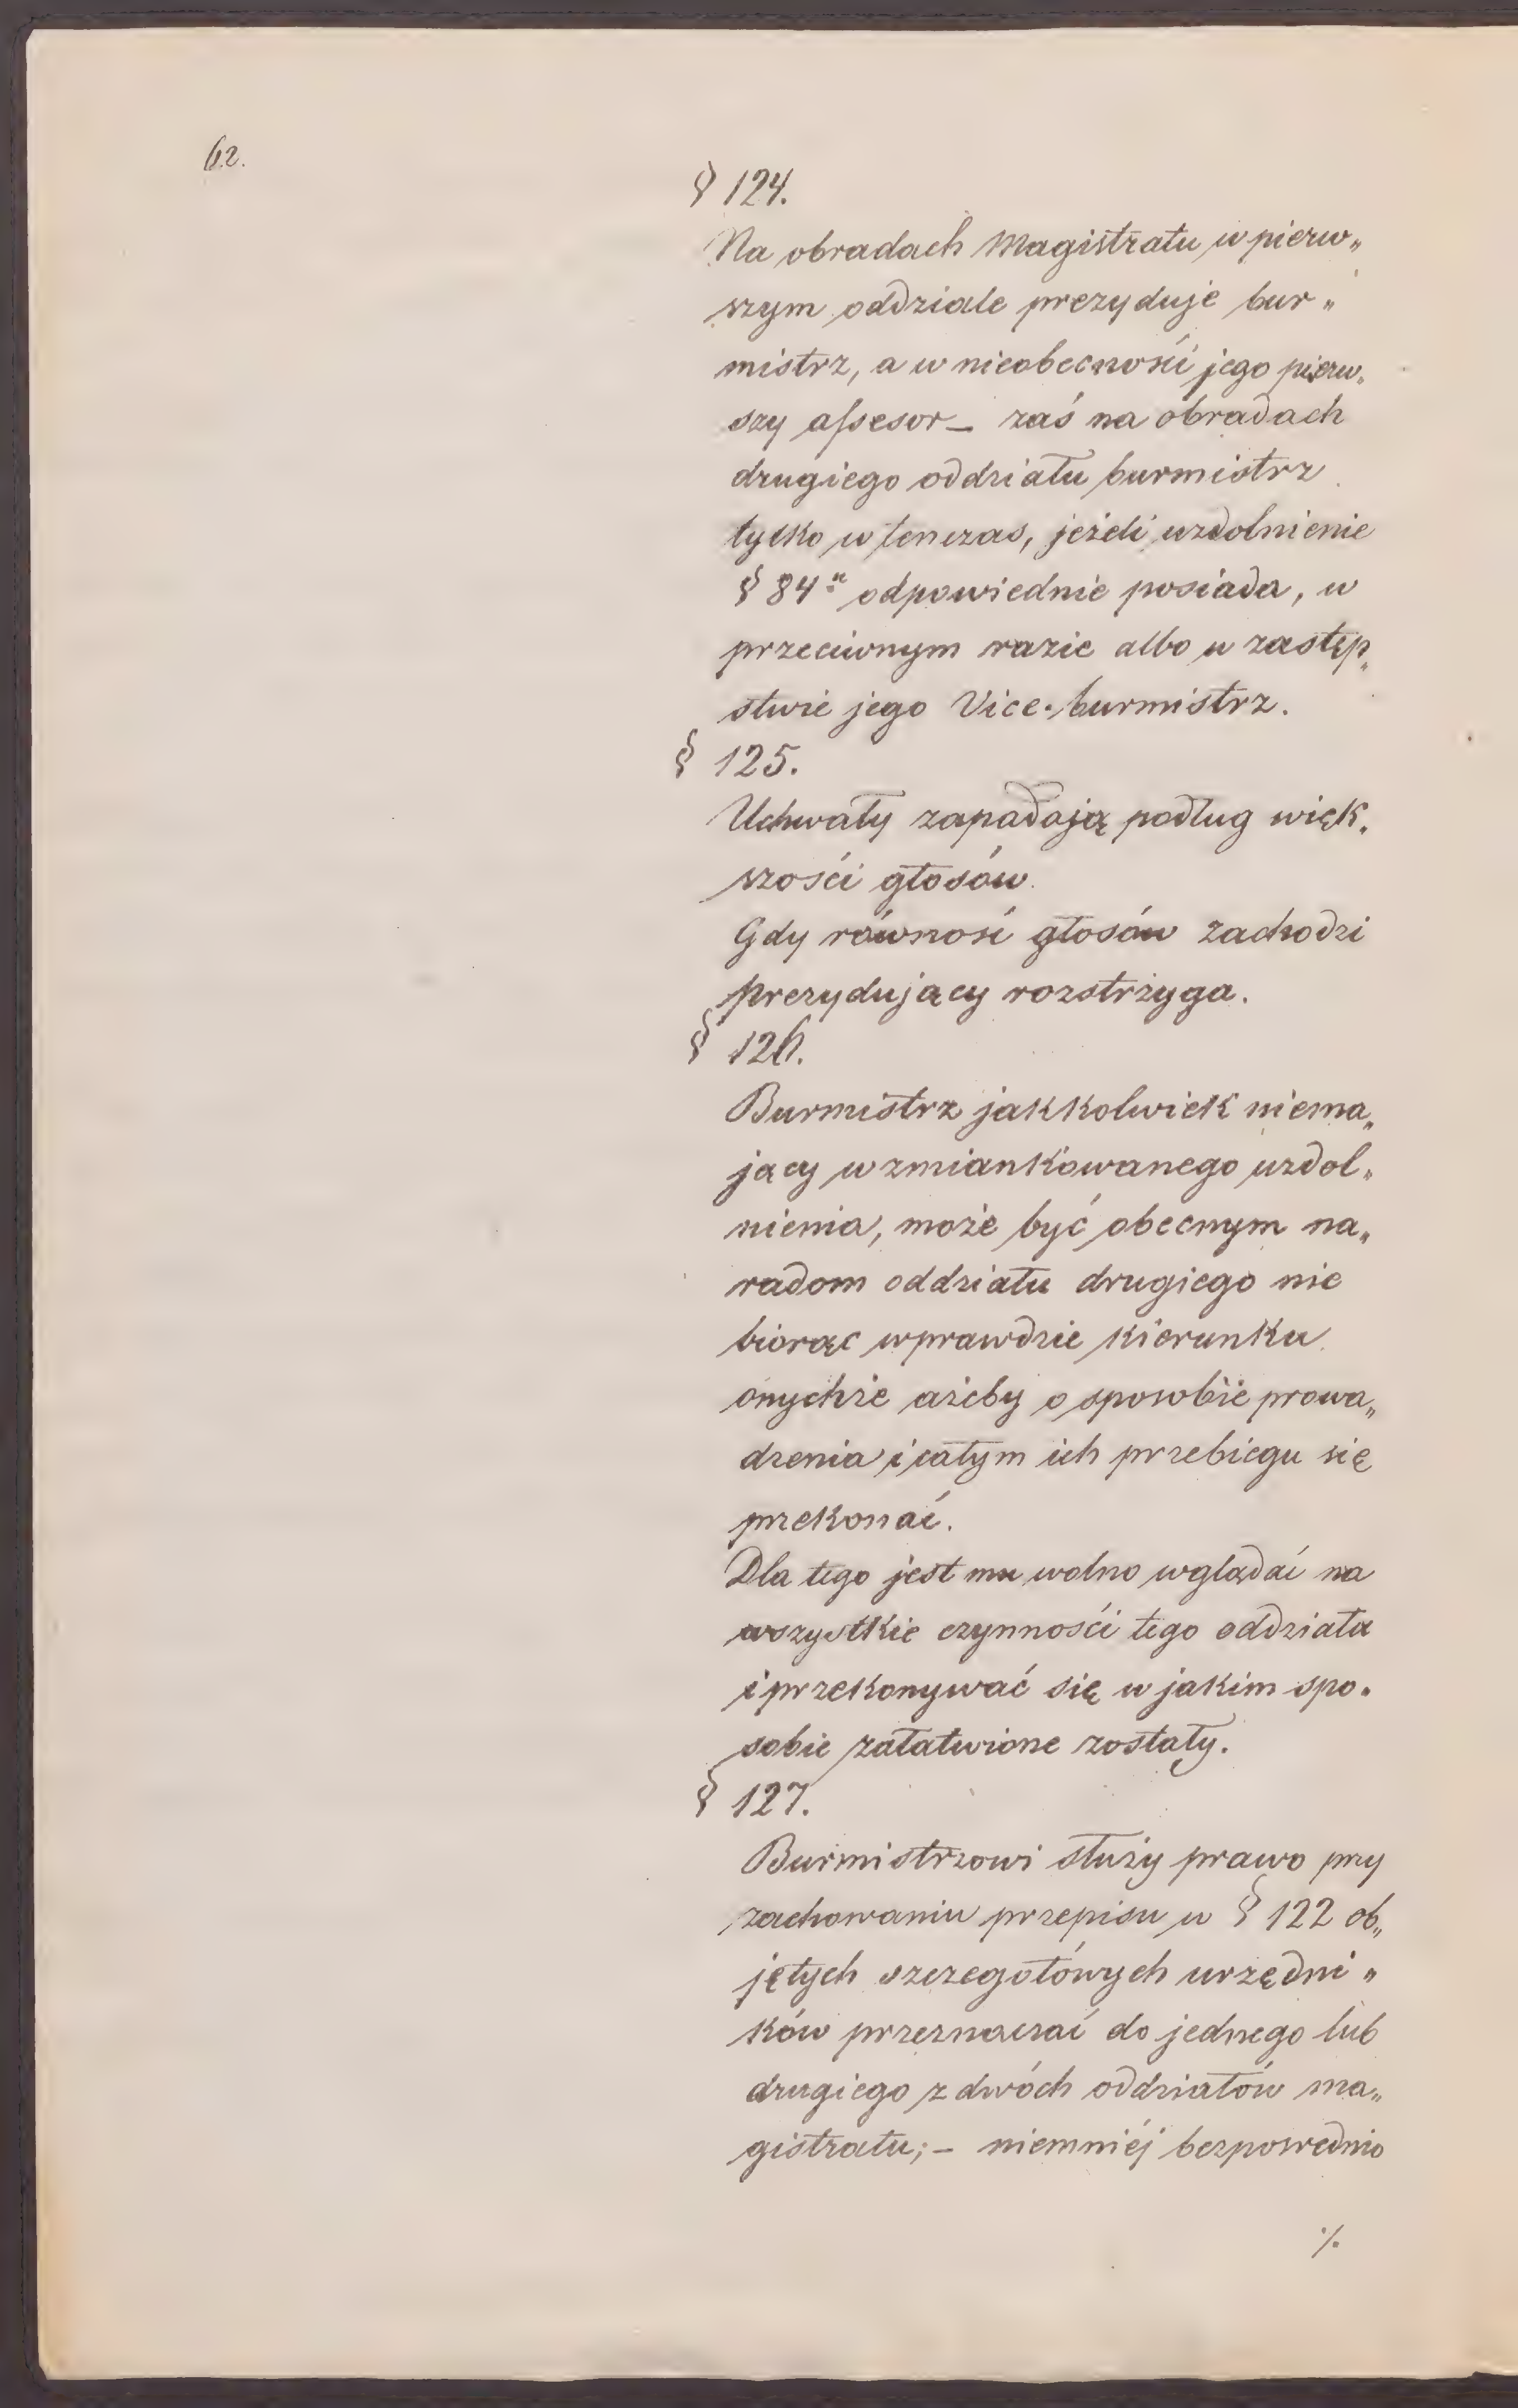 62.
§ 124.
Na obradach Magistratu w pierw„
szym oddziale prezyduje bur„
mistrz, a w nieobecności jego pierw„
szy assesor – zaś na obradach
drugiego oddziału burmistrz
tylko wtenczas, jeżeli uzdolnienie
§ 84 odpowiednie posiada, w
przeciwnym razie albo w zastęp„
stwie jego Vice-burmistrz.
§ 125.
Uchwały zapadają podług więk„
szości głosów.
Gdy równość głosów zachodzi
prezydujący rozstrzyga.
§ 126.
Burmistrz jakkolwiek niema„
jący wzmiankowanego uzdol„
nienia, może być obecnym na„
radom oddziału drugiego nie
biorąc wprawdzie kierunku
onychże ażeby o sposobie prowa„
dzenia i całym ich przebiegu się
przekonać.
Dla tego jest mu wolno wglądać na
wszystkie czynności tego oddziału
i przekonywać się w jakim spo„
sobie załatwione zostały.
§ 127.
Burmistrzowi służy prawo przy
zachowaniu przepisu w § 122 ob„
jętych szczegółowych urzędni„
ków przeznaczać do jednego lub
drugiego z dwóch oddziałów ma„
gistratu; – niemniéj bezpośrednio
⁒